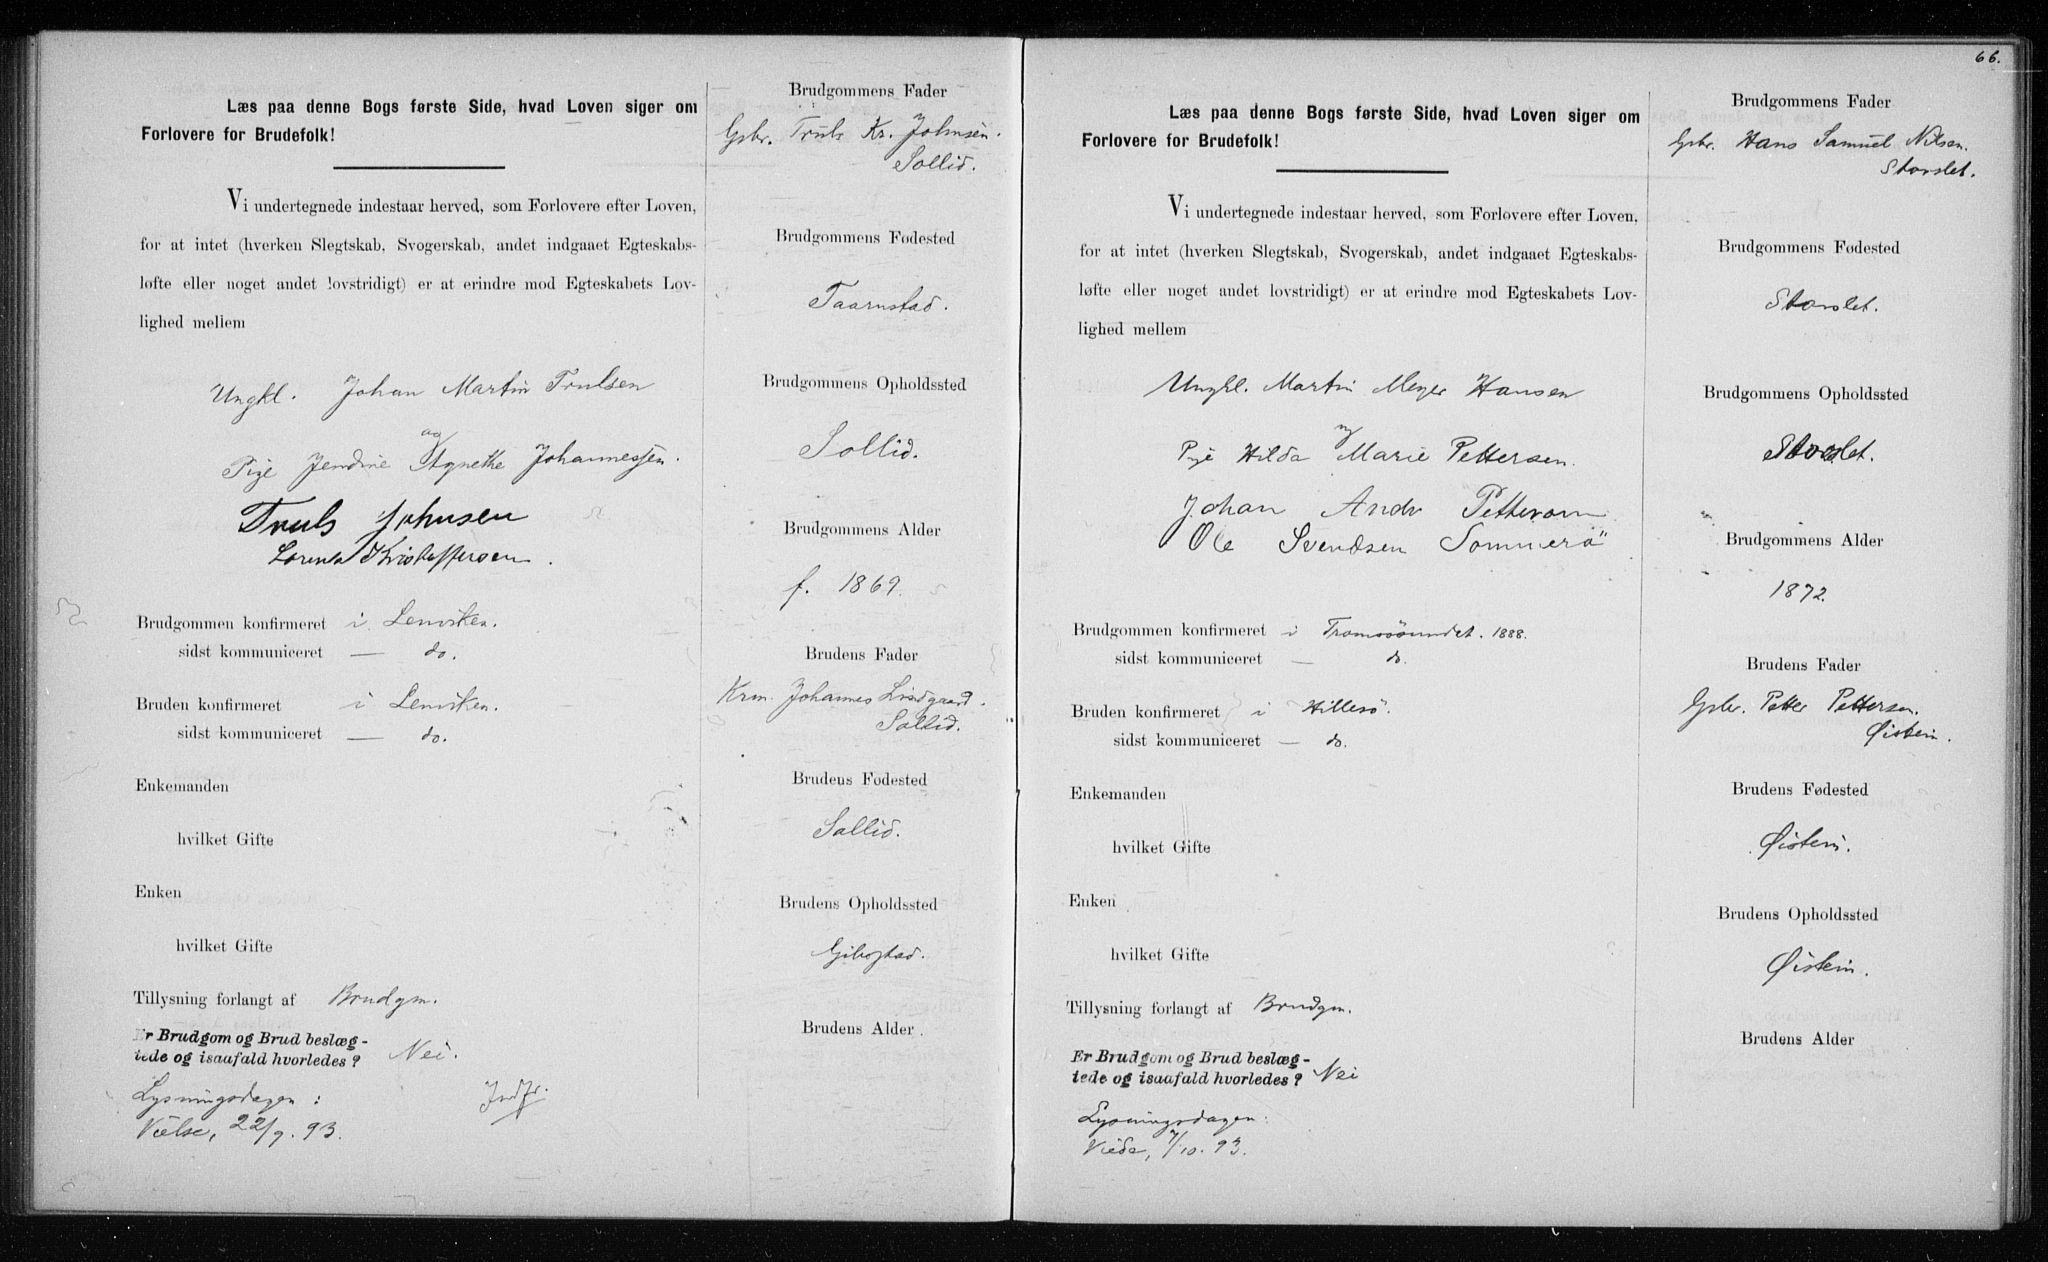 Læs paa denne Bogs første Side, hvad Loven siger om
Forlovere for Brudefolk!
Vi undertegnede indestaar herved, som Forlovere efter Loven,
for at intet (hverken Slegtskab, Svogerskab, andet indgaaet Egteskabs-
løfte eller noget andet lovstridigt) er at erindre mod Egteskabets Lov-
lighed mellem
Ungkl. Johan Martin Trulsen
og
Pige Jendine Agnethe Johannessen.
Truls Johnsen
Kristoffersen.
Brudgommen konfirmeret i Lenviken.
sidst kommuniceret — do.
Bruden konfirmeret i Lenviken.
sidst kommuniceret — do.
Enkemanden
hvilket Gifte
Enken
hvilket Gifte
Tillysning forlangt af Brudgm.
Er Brudgom og Brud beslæg-
tede og isaafald hvorledes? Nei.
Lysningsdagen:
22/9. 93.
Brudgommens Fader
Gbr. Truls Kr. Johnsen.
Sollid.
Brudgommens Fødested
Taarnstad.
Brudgommens Opholdssted
Sollid.
Brudgommens Alder
f. 1869.
Brudens Fader
Krm. Johannes Lindgaard.
Sollid.
Brudens Fødested
Sollid.
Brudens Opholdssted
Gibostad.
Brudens Alder
66.
Læs paa denne Bogs første Side, hvad Loven siger om
Forlovere for Brudefolk!
Vi undertegnede indestaar herved, som Forlovere efter Loven,
for at intet (hverken Slegtskab, Svogerskab, andet indgaaet Egteskabs-
løfte eller noget andet lovstridigt) er at erindre mod Egteskabets Lov-
lighed mellem
Ungkl. Martin Meyer Hansen
og
Pige Hilda Marie Pettersen.
Johan Andr Pettersen
Ole Svendsen Sommerö
Brudgommen konfirmeret i Tromsösundet. 1888.
sidst kommuniceret — do.
Bruden konfirmeret i Hillesö.
sidst kommuniceret — do.
Enkemanden
hvilket Gifte
Enken
hvilket Gifte
Tillysning forlangt af Brudgm.
Er Brudgom og Brud beslæg-
tede og isaafald hvorledes? Nei
Lysningsdagen:
Viede, 7/10. 93.
Brudgommens Fader
Gbr. Hans Samuel Nilsen.
Storslet.
Brudgommens Fødested
Storslet.
Brudgommens Opholdssted
Storslet.
Brudgommens Alder
1872.
Brudens Fader
Gbr. Petter Pettersen.
Øistein.
Brudens Fødested
Øistein.
Brudens Opholdssted
Øistein.
Brudens Alder